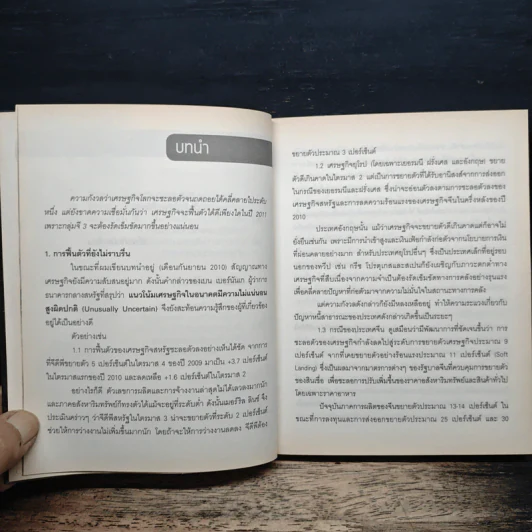 บทนำ
ความกังวลว่าเศรษฐกิจโลกจะชะลอตัวจนถดถอยได้คลี่คลายไประดับ
หนึ่ง แต่ยังขาดความเชื่อมั่นกันว่า เศรษฐกิจจะฟื้นตัวได้ดีเพียงใดในปี 2011
เพราะกลุ่มจี 3 จะต้องรัดเข็มขัดมากขึ้นอย่างแน่นอน
1. การฟื้นตัวที่ยังไม่ราบรื่น
ในขณะที่ผมเขียนบทนำอยู่ (เดือนกันยายน 2010) สัญญาณทาง
เศรษฐกิจยังมีความสับสนอยู่มาก ดังนั้นคำกล่าวของเบน เบอร์นันเก ผู้ว่าการ
ธนาคารกลางสหรัฐที่สรุปว่า แนวโน้มเศรษฐกิจในอนาคตมีความไม่แน่นอน
สูงผิดปกติ (Unusually Uncertain) จึงยังสะท้อนความรู้สึกของผู้ที่เกี่ยวข้อง
อยู่ได้เป็นอย่างดี
ตัวอย่างเช่น
1.1 การฟื้นตัวของเศรษฐกิจสหรัฐชะลอตัวลงอย่างเห็นได้ชัด จากการ
ที่จีดีพีขยายตัว 5 เปอร์เซ็นต์ในไตรมาส 4 ของปี 2009 มาเป็น +3.7 เปอร์เซ็นต์
ในไตรมาสแรกของปี 2010 และลดเหลือ +1.6 เปอร์เซ็นต์ในไตรมาส 2
อย่างไรก็ดี ตัวเลขการผลิตและการจ้างงานล่าสุดไม่ได้เลวลงมากนัก
และภาคอสังหาริมทรัพย์ก็ทรงตัวได้แม้จะอยู่ที่ระดับต่ำ ดังนั้นเมอร์ริล ลินช์ จึง
ประเมินคร่าวๆ ว่าจีดีพีสหรัฐในไตรมาส 3 น่าจะขยายตัวที่ระดับ 2 เปอร์เซ็นต์
ช่วยให้การว่างงานไม่เพิ่มขึ้นมากนัก โดยถ้าจะให้การว่างงานลดลง จีดีพีต้อง
ขยายตัวประมาณ 3 เปอร์เซ็นต์
1.2 เศรษฐกิจยุโรป (โดยเฉพาะเยอรมนี ฝรั่งเศส และอังกฤษ) ขยาย
ตัวดีเกินคาดในไตรมาส 2 แต่เป็นการขยายตัวที่ได้รับอานิสงส์จากการส่งออก
ในกรณีของเยอรมนีและฝรั่งเศส ซึ่งน่าจะอ่อนตัวลงตามการชะลอตัวลงของ
เศรษฐกิจสหรัฐและการลดความร้อนแรงของเศรษฐกิจจีนในครึ่งหลังของปี
2010
ประเทศอังกฤษนั้น แม้ว่าเศรษฐกิจจะขยายตัวดีเกินคาดแต่ก็อาจไม่
ยั่งยืนเช่นกัน เพราะมีการนำเข้าสูงและเงินเฟ้อกำลังก่อตัวจากนโยบายการเงิน
ที่ผ่อนคลายอย่างมาก สำหรับประเทศยุโรปอื่นๆ ซึ่งเป็นประเทศเล็กที่อยู่รอบ
นอกของทวีป เช่น กรีซ โปรตุเกสและสเปนก็ยังเผชิญกับภาวะตกต่ำทาง
เศรษฐกิจที่สืบเนื่องจากความจำเป็นต้องรัดเข็มขัดทางการคลังอย่างรุนแรง
เพื่อคลี่คลายปัญหาที่ก่อตัวมาจากความไม่มั่นใจในสถานะทางการคลัง
แต่ความกังวลดังกล่าวก็ยังมีหลงเหลืออยู่ ทำให้ความระแวงเกี่ยวกับ
ปัญหาหนี้สาธารณะของประเทศดังกล่าวเกิดขึ้นเป็นระยะๆ
1.3 กรณีของประเทศจีน ดูเหมือนว่ามีพัฒนาการที่ชัดเจนขึ้นว่า การ
ชะลอตัวของเศรษฐกิจกำลังลดไปสู่ระดับการขยายตัวเศรษฐกิจประมาณ 9
เปอร์เซ็นต์ จากที่เคยขยายตัวอย่างร้อนแรงประมาณ 11 เปอร์เซ็นต์ (Soft
Landing) ซึ่งเป็นผลมาจากมาตรการต่างๆ ของรัฐบาลจีนที่ควบคุมการขยายตัว
ของสินเชื่อ เพื่อชะลอการปรับเพิ่มขึ้นของราคาอสังหาริมทรัพย์และสินค้าทั่วไป
โดยเฉพาะราคาอาหาร
ปัจจุบันภาคการผลิตของจีนขยายตัวประมาณ 13-14 เปอร์เซ็นต์ ใน
ขณะที่การลงทุนและการส่งออกขยายตัวประมาณ 25 เปอร์เซ็นต์ และ 30